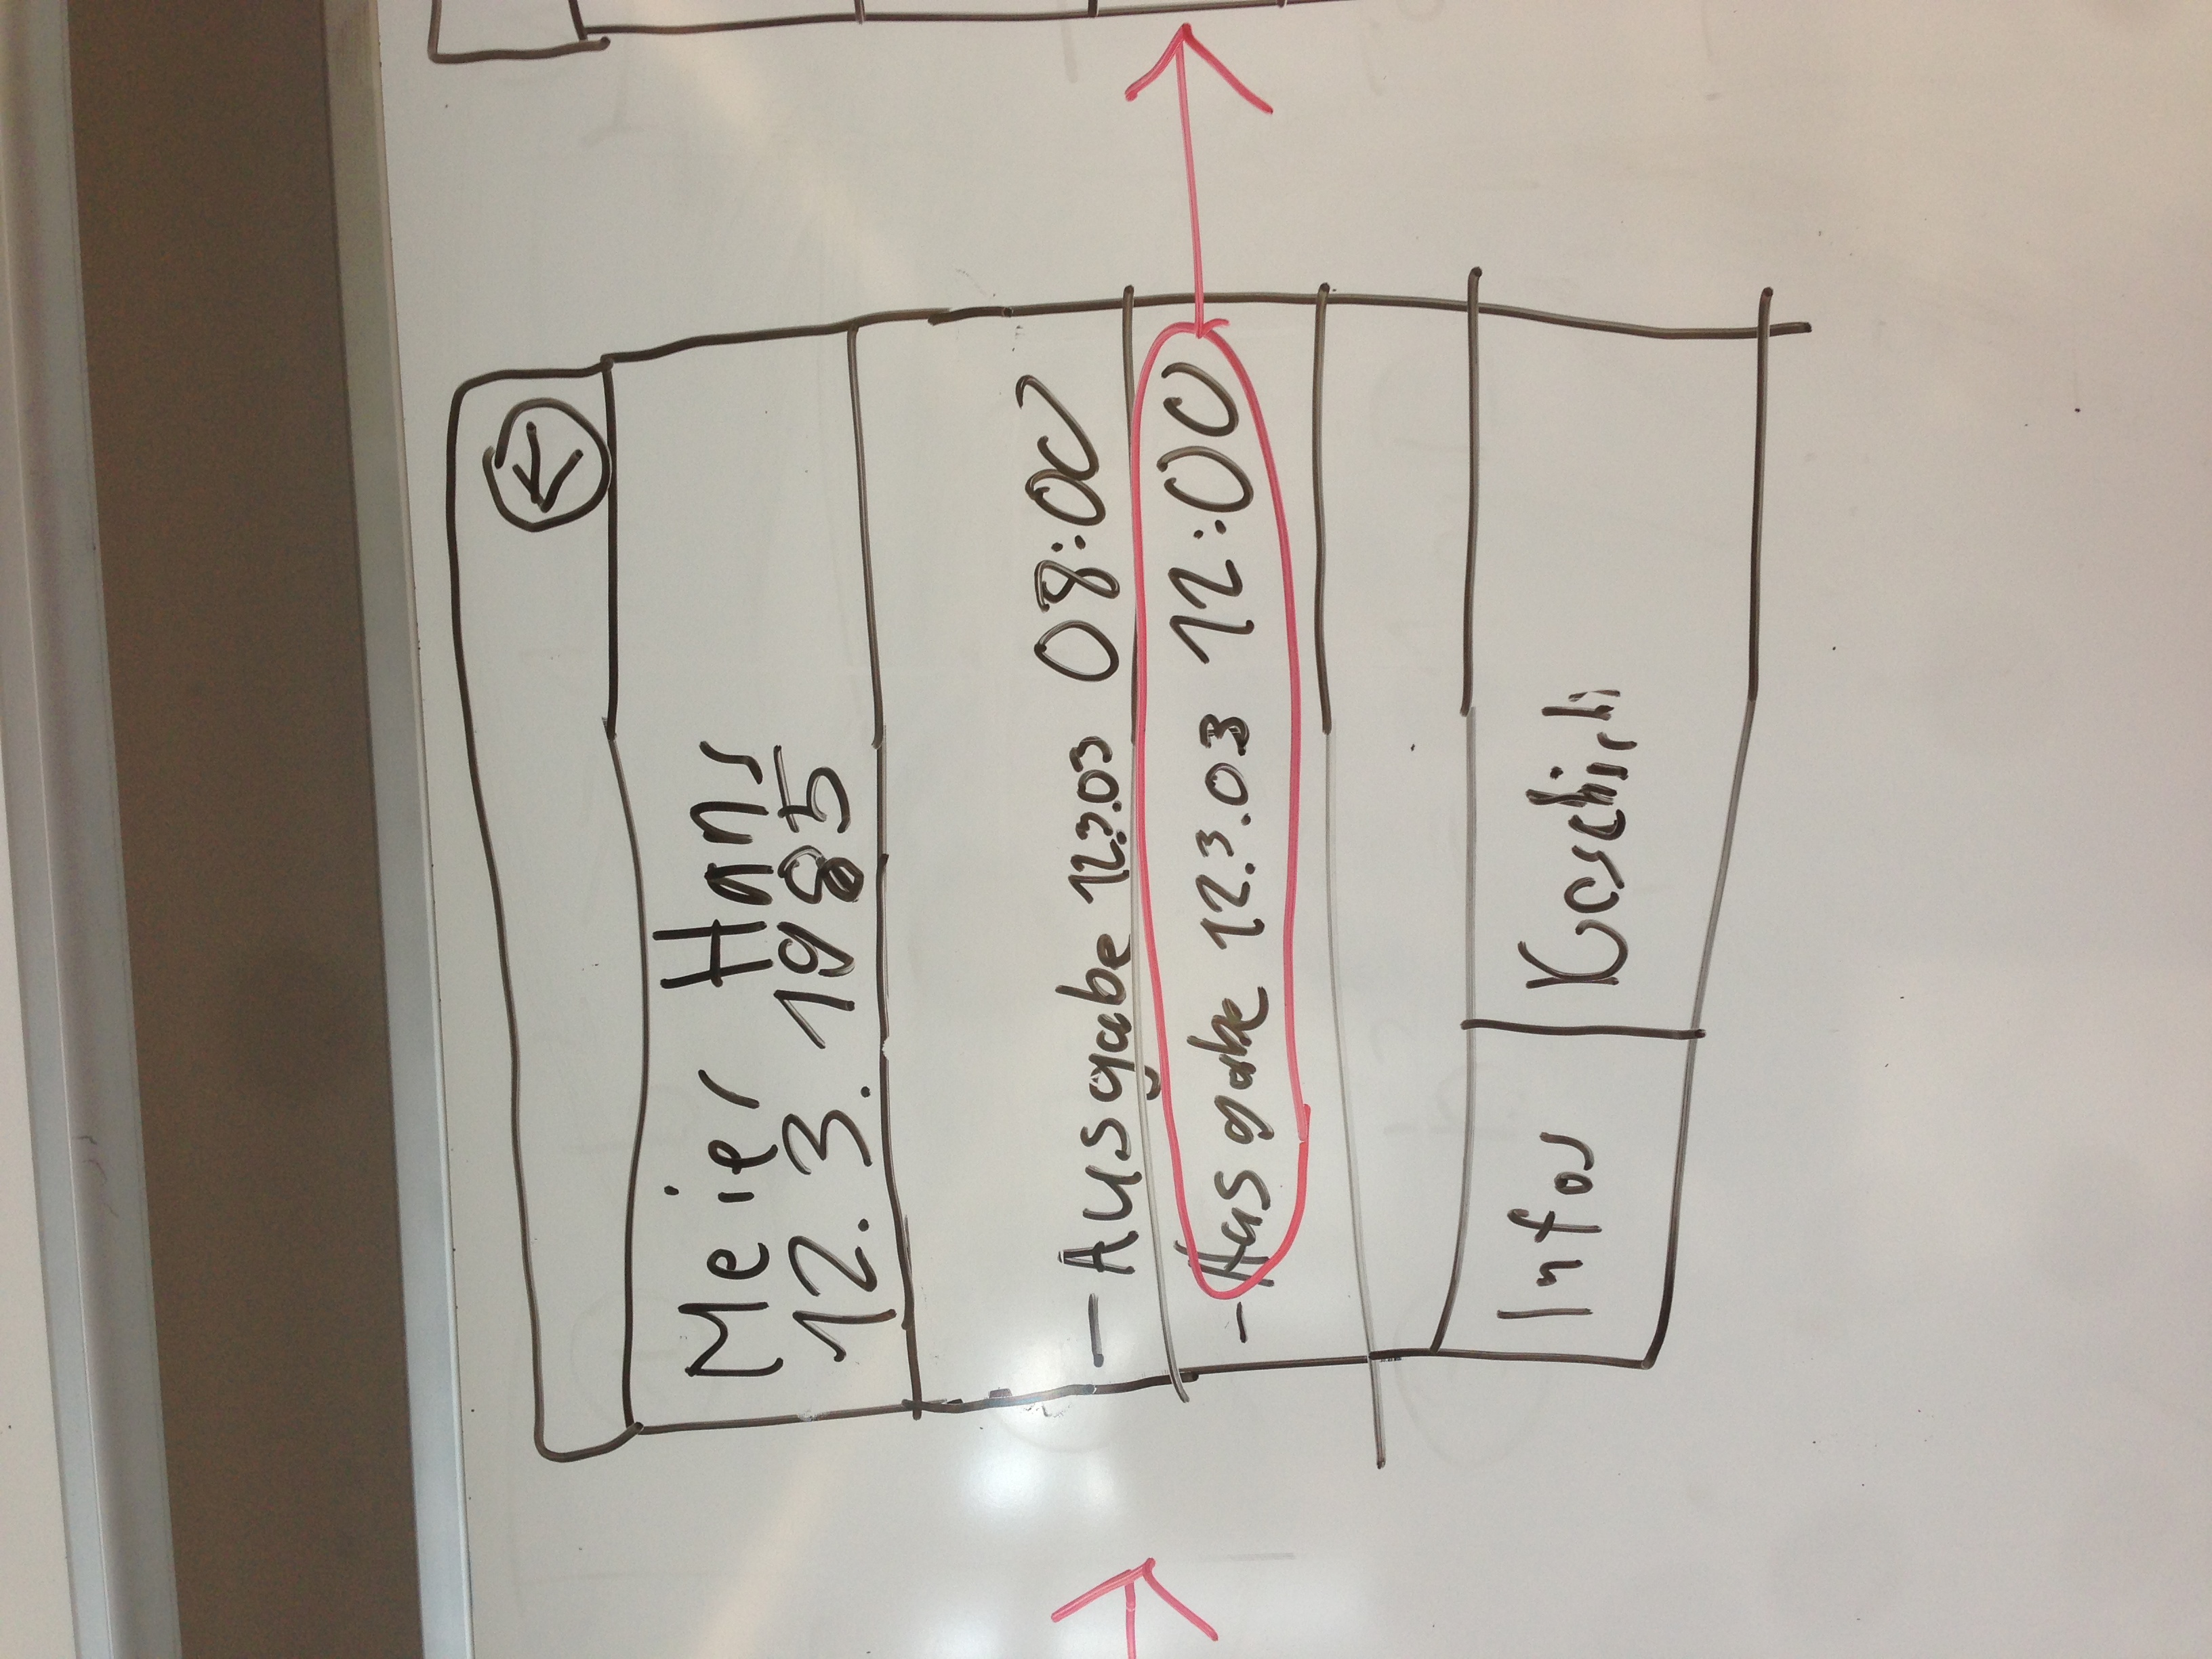 Meier Hans
12.3.1985
- Ausgabe 12.3.03 08:00
- Ausgabe 12.3.03 12:00
Infos